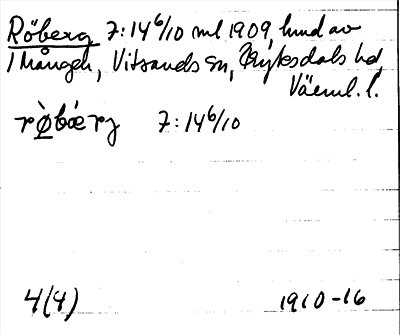 Röberg 7:14 6/10 ml 1909, hmd av
1 Mången, Vitsands sn, Fryksdals hd,
Värml. l.
rø̀bærj 7:14 6/10
4(4) 1910-16